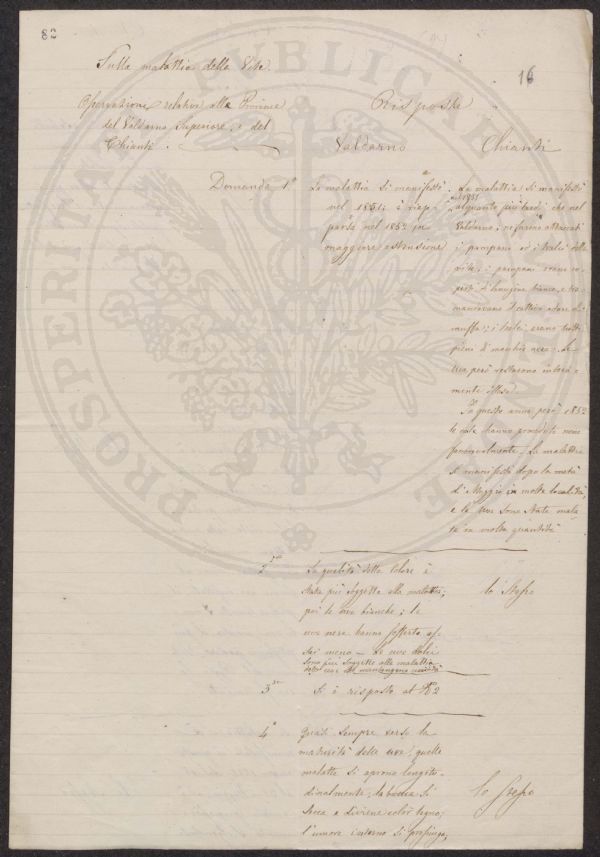 82
16
Sulla malattia della Vite.
Osservazione relative alla Provincie
del Valdarno Superiore, e del
Chianti.
Risposte
Valdarno
Chianti
Domanda 1ª
La malattia si manifestò
nel 1851; è riap=
parsa nel 1852 in
maggiore estensione
La malattia si manifestò
nel 1851
alquanto più tardi che nel
Valdarno; ne furono attaccati
i pampani ed i tralci delle
viti; i pampani erano co
perti di lanugine bianca, e tra
mandavano cattivo odore di
muffa; i tralci erano tutti
pieni di macchie nere. Le
uve però restarono intera=
mente illese.
In questo anno però 1852
le cose hanno proceduto meno
La malattia
si manifestò dopo la metà
di Maggio in molte località,
e le uve sono state mala
te in molta quantità
2ª
La qualità detta Colore è
stata più soggetta alla malattia;
poi le uve bianche; le
uve nere hanno sofferto as=
sai meno – Le uve dolci
sono più soggette alla malattia
lo Stesso
3ª
Si è risposto al Nº 2
4ª
Quasi sempre verso la
maturità delle uve, quelle
malate si aprono longitu=
dinalmente, la buccia si
secca e diviene color legno;
l'umore interno si prosciuga,
lo Stesso
PUBLICA
PROSPERITA